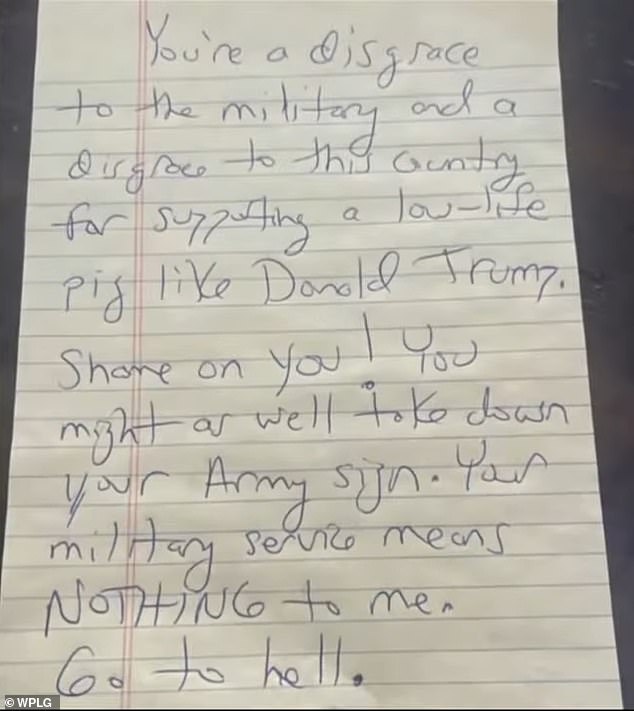 You're a Disgrace
to the military and a
Disgrace to this Country
for supporting a low-life
pig like Donald Trump.
Shame on you! You
might as well take down
your Army sign. Your
military service means
NOTHING to me.
Go to hell.
© WPLG